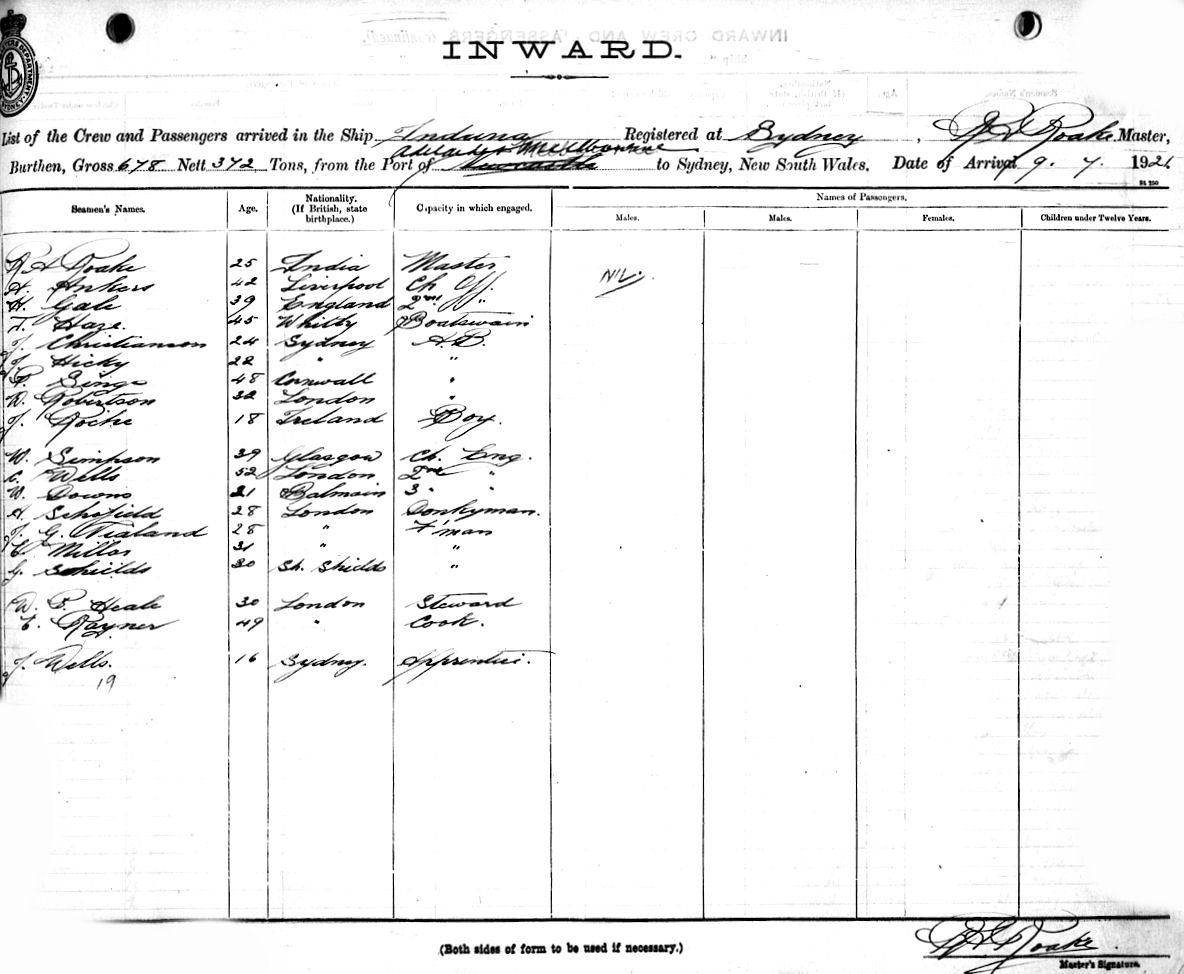 INWARD.
List of the Crew and Passengers arrived in the Ship Induna Registered at Sydney, Roake Master,
Adelaide & Melbourne
Burthen, Gross 678 Nett 372 Tons, from the Port of to Sydney, New South Wales, Date of Arrival 9. 7. 1921
Seamen's Names. Age. Nationality. (If British, state birthplace.) Capacity in which engaged. Names of Passengers.
Males. Males. Females. Children under Twelve Years.
R A Roake 25 India Master NIL.
A. Ankers 42 Liverpool Ch Off.
H. Gale 39 England 2nd "
T. Haze 45 Whitby Boatswain
J. Christianson 24 Sydney A.B.
J. Hicky 22 " "
48 Cornwall "
D. Robertson 32 London "
J. Roche 18 Ireland Boy.
W. Simpson 39 Glasgow Ch. Eng.
C. Wells 52 London 2nd "
W. Downs 21 Balmain 3 " "
A. Schofield 28 London Donkyman.
J. G. 28 " F'man
C. Millar 31 " "
G. Schields 30 Sh. Shields "
W. P. Heale 30 London Steward
E. Rayner 49 " Cook.
J. Wells. 16 Sydney. Apprentice.
19
(Both sides of form to be used if necessary.)
Roake
Master's Signature.